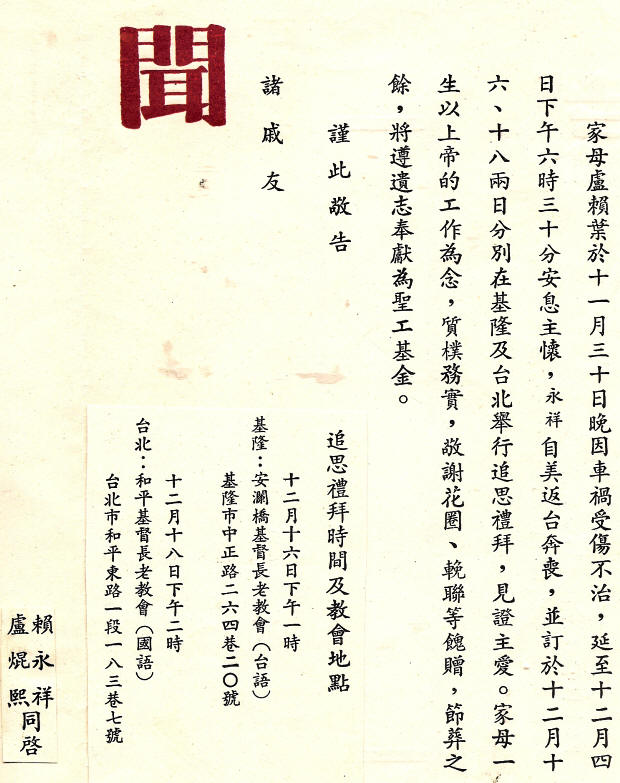 家母盧賴葉於十一月三十日晚因車禍受傷不治，延至十二月四
日下午六時三十分安息主懷，永祥自美返台奔喪，並訂於十二月十
六、十八兩日分別在基隆及台北舉行追思禮拜，見證主愛。家母一
生以上帝的工作為念，質樸務實，敬謝花圈、輓聯等餽贈，節葬之
餘，將遵遺志奉獻為聖工基金。
謹此敬告
諸戚友
聞
追思禮拜時間及教會地點
十二月十六日下午一時
基隆：安瀾橋基督長老教會（台語）
基隆市中正路二六四巷二〇號
十二月十八日下午二時
台北：和平基督長老教會（國語）
台北市和平東路一段一八三巷七號
賴永祥
盧焜熙
同啓